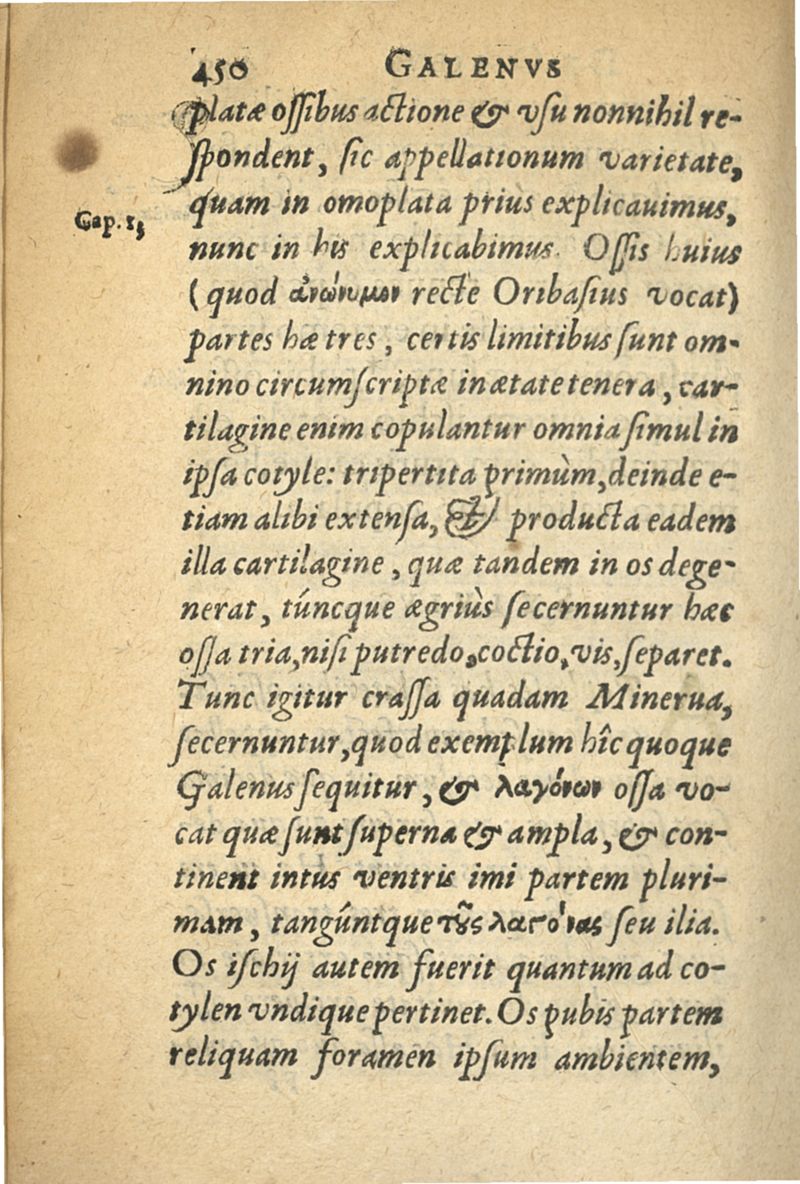 450 GALENVS
platæ ossibus actione & vsu nonnihil re-
spondent, sic appellationum varietate,
quam in omoplata priùs explicauimus,
Cap. 15
nunc in his explicabimus. Ossis huius
(quod ἀνώνυμον rectè Oribasius vocat)
partes hæ tres, certis limitibus sunt om-
nino circumscriptæ in ætate tenera, car-
tilagine enim copulantur omnia simul in
ipsa cotyle: tripertita primùm, deinde e-
tiam alibi extensa, & producta eadem
illa cartilagine, quæ tandem in os dege-
nerat, túncque ægriùs secernuntur hæc
ossa tria, nisi putredo, coctio, vis, separet.
Tunc igitur crassa quadam Minerua,
secernuntur, quod exemplum hîc quoque
Galenus sequitur, & λαγόνων ossa vo-
cat quæ sunt superna & ampla, & con-
tinent intus ventris imi partem pluri-
mam, tangúntque τοῦς λαγόνας seu ilia.
Os ischij autem fuerit quantum ad co-
tylen vndique pertinet. Os pubis partem
reliquam foramen ipsum ambientem,